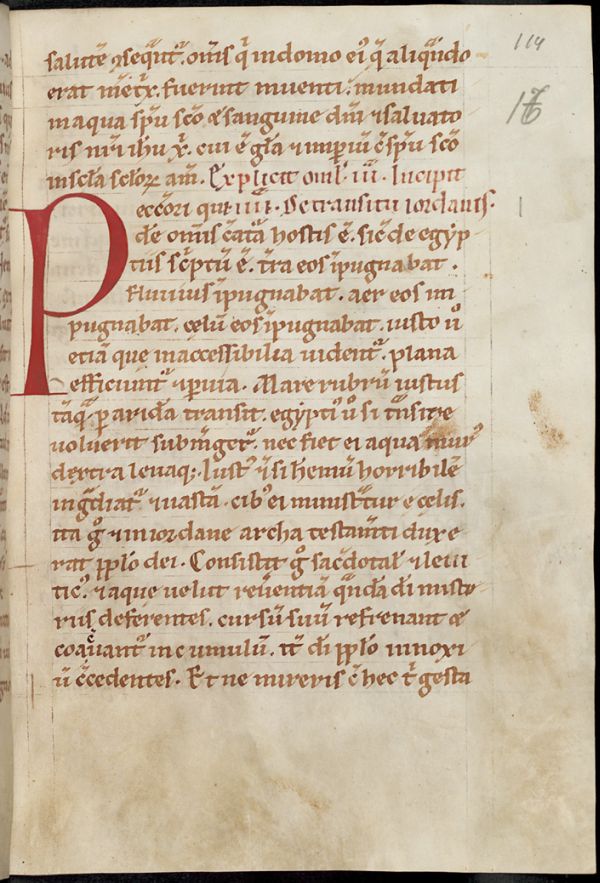 114
16
salutē ↄseq̄nt᷑. om̄s q̄ in domo ei᷒ q̄ aliq̄ndo
erat m̄et̄x. fuerint inventi. mundati
in aqua sp̄u sc̄o & sanguine dn̄i & salvato
ris nr̄i ihu x̄. cui ē gl̄a & imꝑiū c̄ sp̄u sc̄o
in scl̄a scl̄oꝝ am̄. Explicit oml̄. iii. Incipit
Peccōri que iiii. De transitu iordanis.
de om̄is c̄ata hostis ē. sic̄ de egyp
tiis sc̄ptū ē. tr̄a eos īpugnabat.
Fluvius īpugnabat. aer eos im
pugnabat. celū eos īpugnabat. iusto ū
etiā que inaccessibilia vident᷑. plana
efficiunt᷑ & ꝑvia. Mare rubrū iustus
tāq̄ ꝑ aridā transit. egyptī ū si t̄nsire
voluerit subm̄get᷑. nec fiet ei aqua mur᷒
dextra levaq;. Iust᷒ & si hemū horribilē
inḡdiat᷑ & vastā. cib᷒ ei minist̄tur e celis.
ita ḡ & in iordane archa testam̄ti dux e
rat ppl̄o dei. Consistit ḡ sac̄dotal᷑ & levi
tic᷒. & aque velut rev̄entiā q̄ndā dī misto
riis deferentes. cursū suū refrenant &
coac̄vant᷑ in cumulū. it̄ dī ppl̄o innoxi
ū c̄cedentes. Et ne mireris c̄ hec t̄ gesta